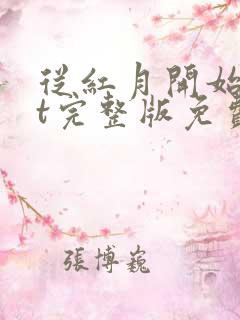 從紅月開始
t完整版免費
張博巍